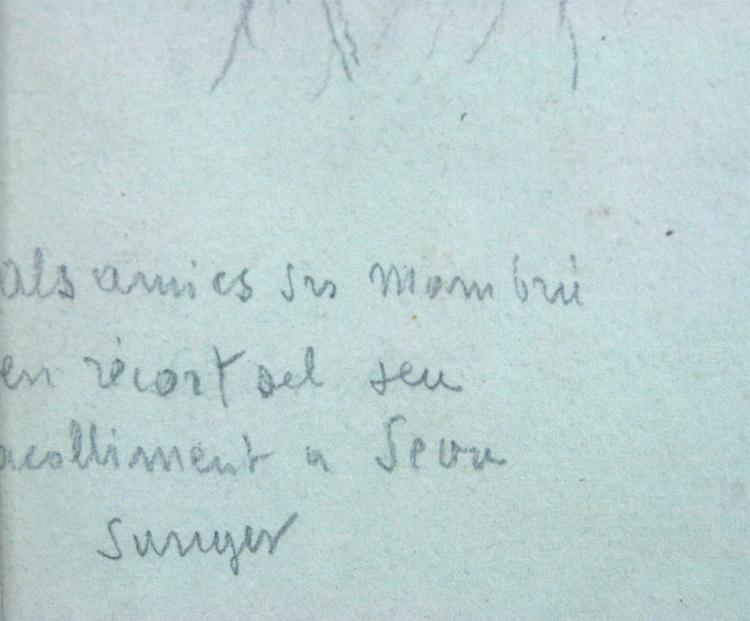 als amics Srs Mombrú
en récort del seu
acolliment a Seva
Sunyer